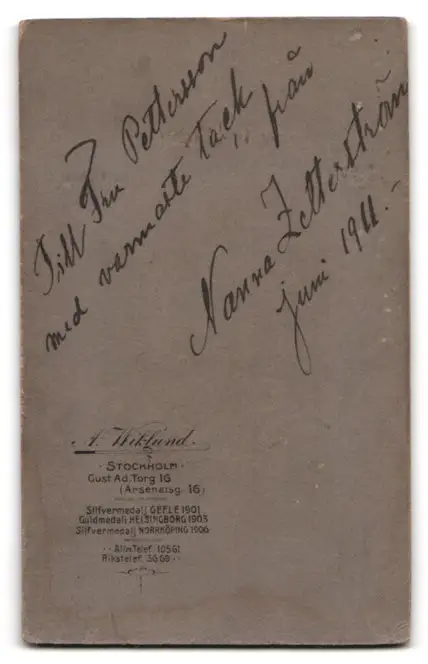 Till Fru Pettersson
med varmaste tack från
Nanna Zetterström
juni 1911.-
A. Wiklund.
· STOCKHOLM ·
Gust. Ad. Torg 16
(Arsenalsg. 16)
Silfvermedalj GEFLE 1901
Guldmedalj HELSINGBORG 1903
Silfvermedalj NORRKÖPING 1906
·· Allm. Telef. 10561
Rikstelef. 3668 ··